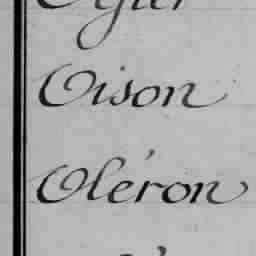 Oison
Oléron